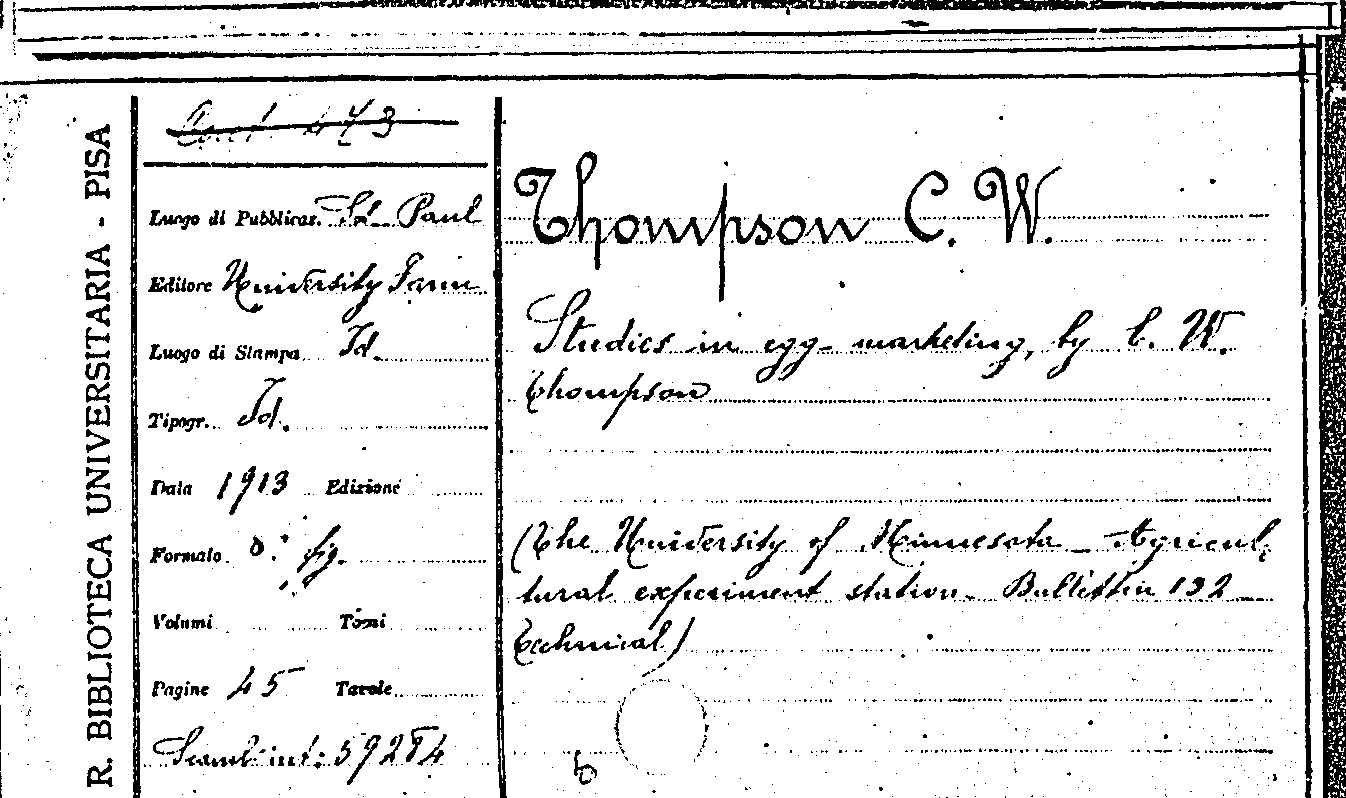 R. BIBLIOTECA UNIVERSITARIA - PISA
Cont. 473
Luogo di Pubblicaz. St. Paul
Editore University Farm
Luogo di Stampa Id.
Tipogr. Id.
Data 1913 Edizione
Formato 8.° fig.
Volumi Tomi
Pagine 45 Tavole
Scamb. int: 59284
Thompson C. W.
Studies in egg marketing, by C. W.
Thompson
(The University of Minnesota _ Agricul,
tural experiment station. Bullettin 132
Technical)
b